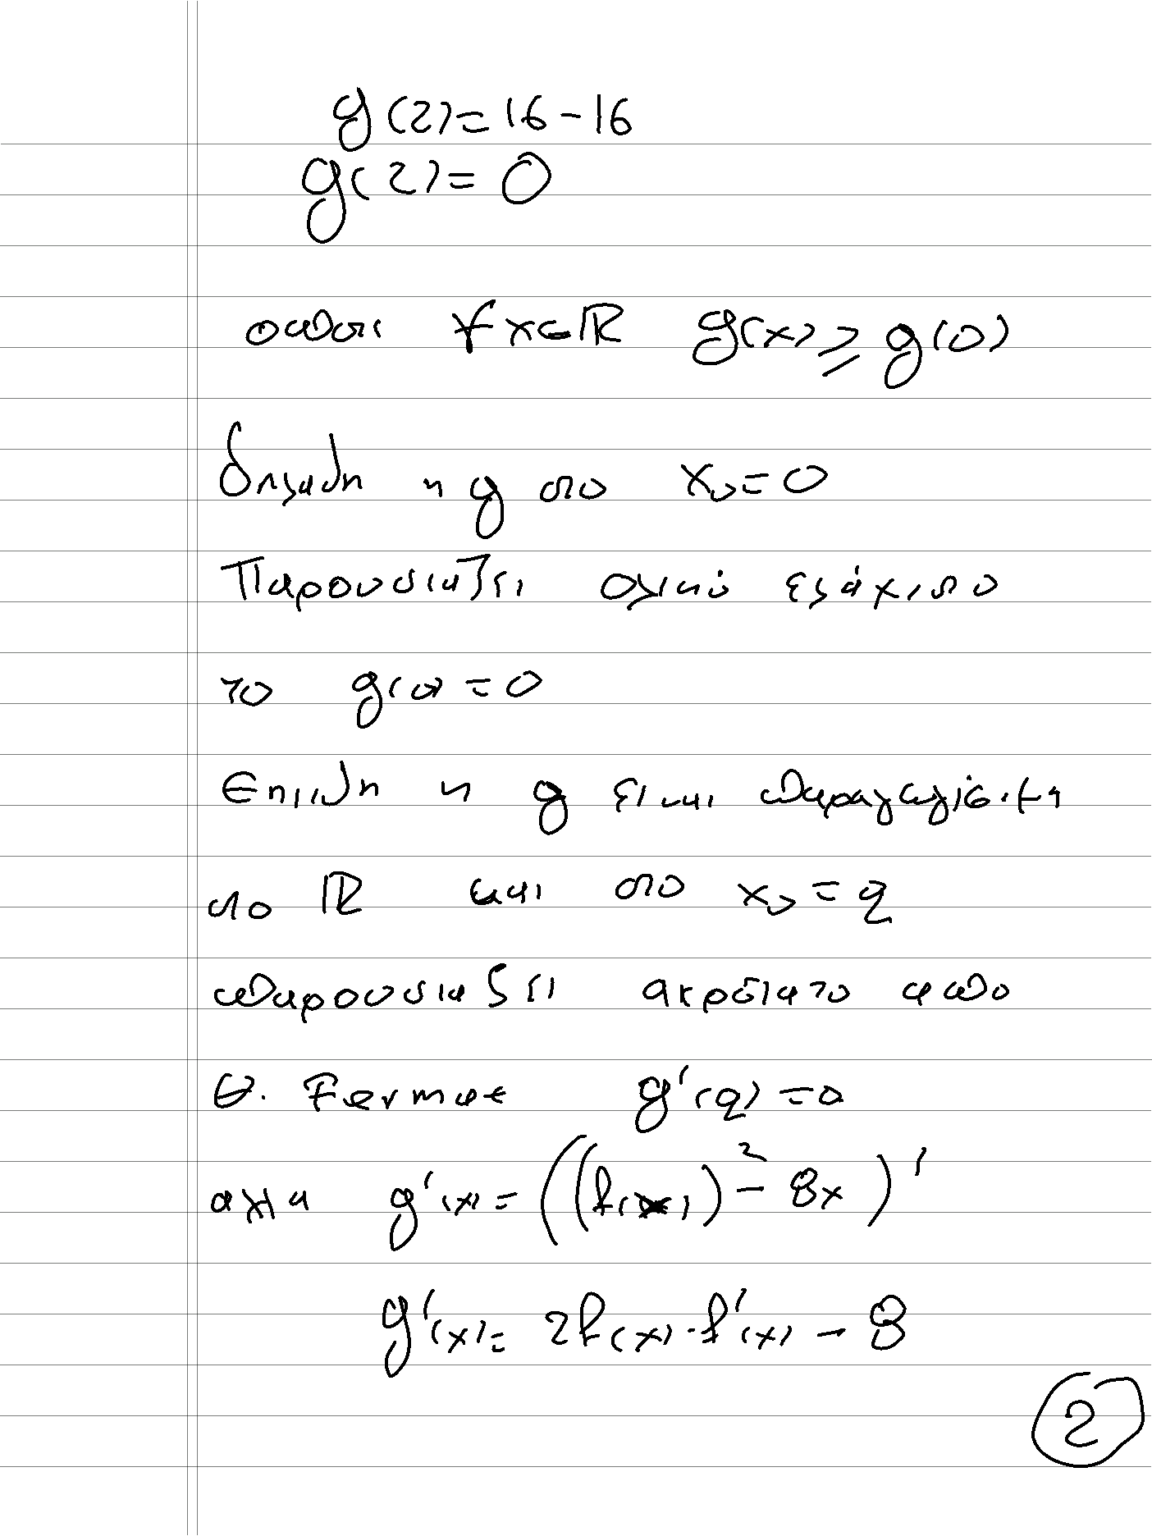 g(2)=16-16
g(2)=0
οπότε ∀x∈ℝ g(x)≥g(0)
δηλαδή η g στο x₀=0
Παρουσιάζει ολικό ελάχιστο
το g(0)=0
Επειδή η g είναι παραγωγίσιμη
στο ℝ και στο x₀=2
παρουσιάζει ακρότατο από
Θ. Fermat g'(2)=0
αλλά g'(x)=((f(x))²-8x)'
g'(x)=2f(x)·f'(x)-8
2